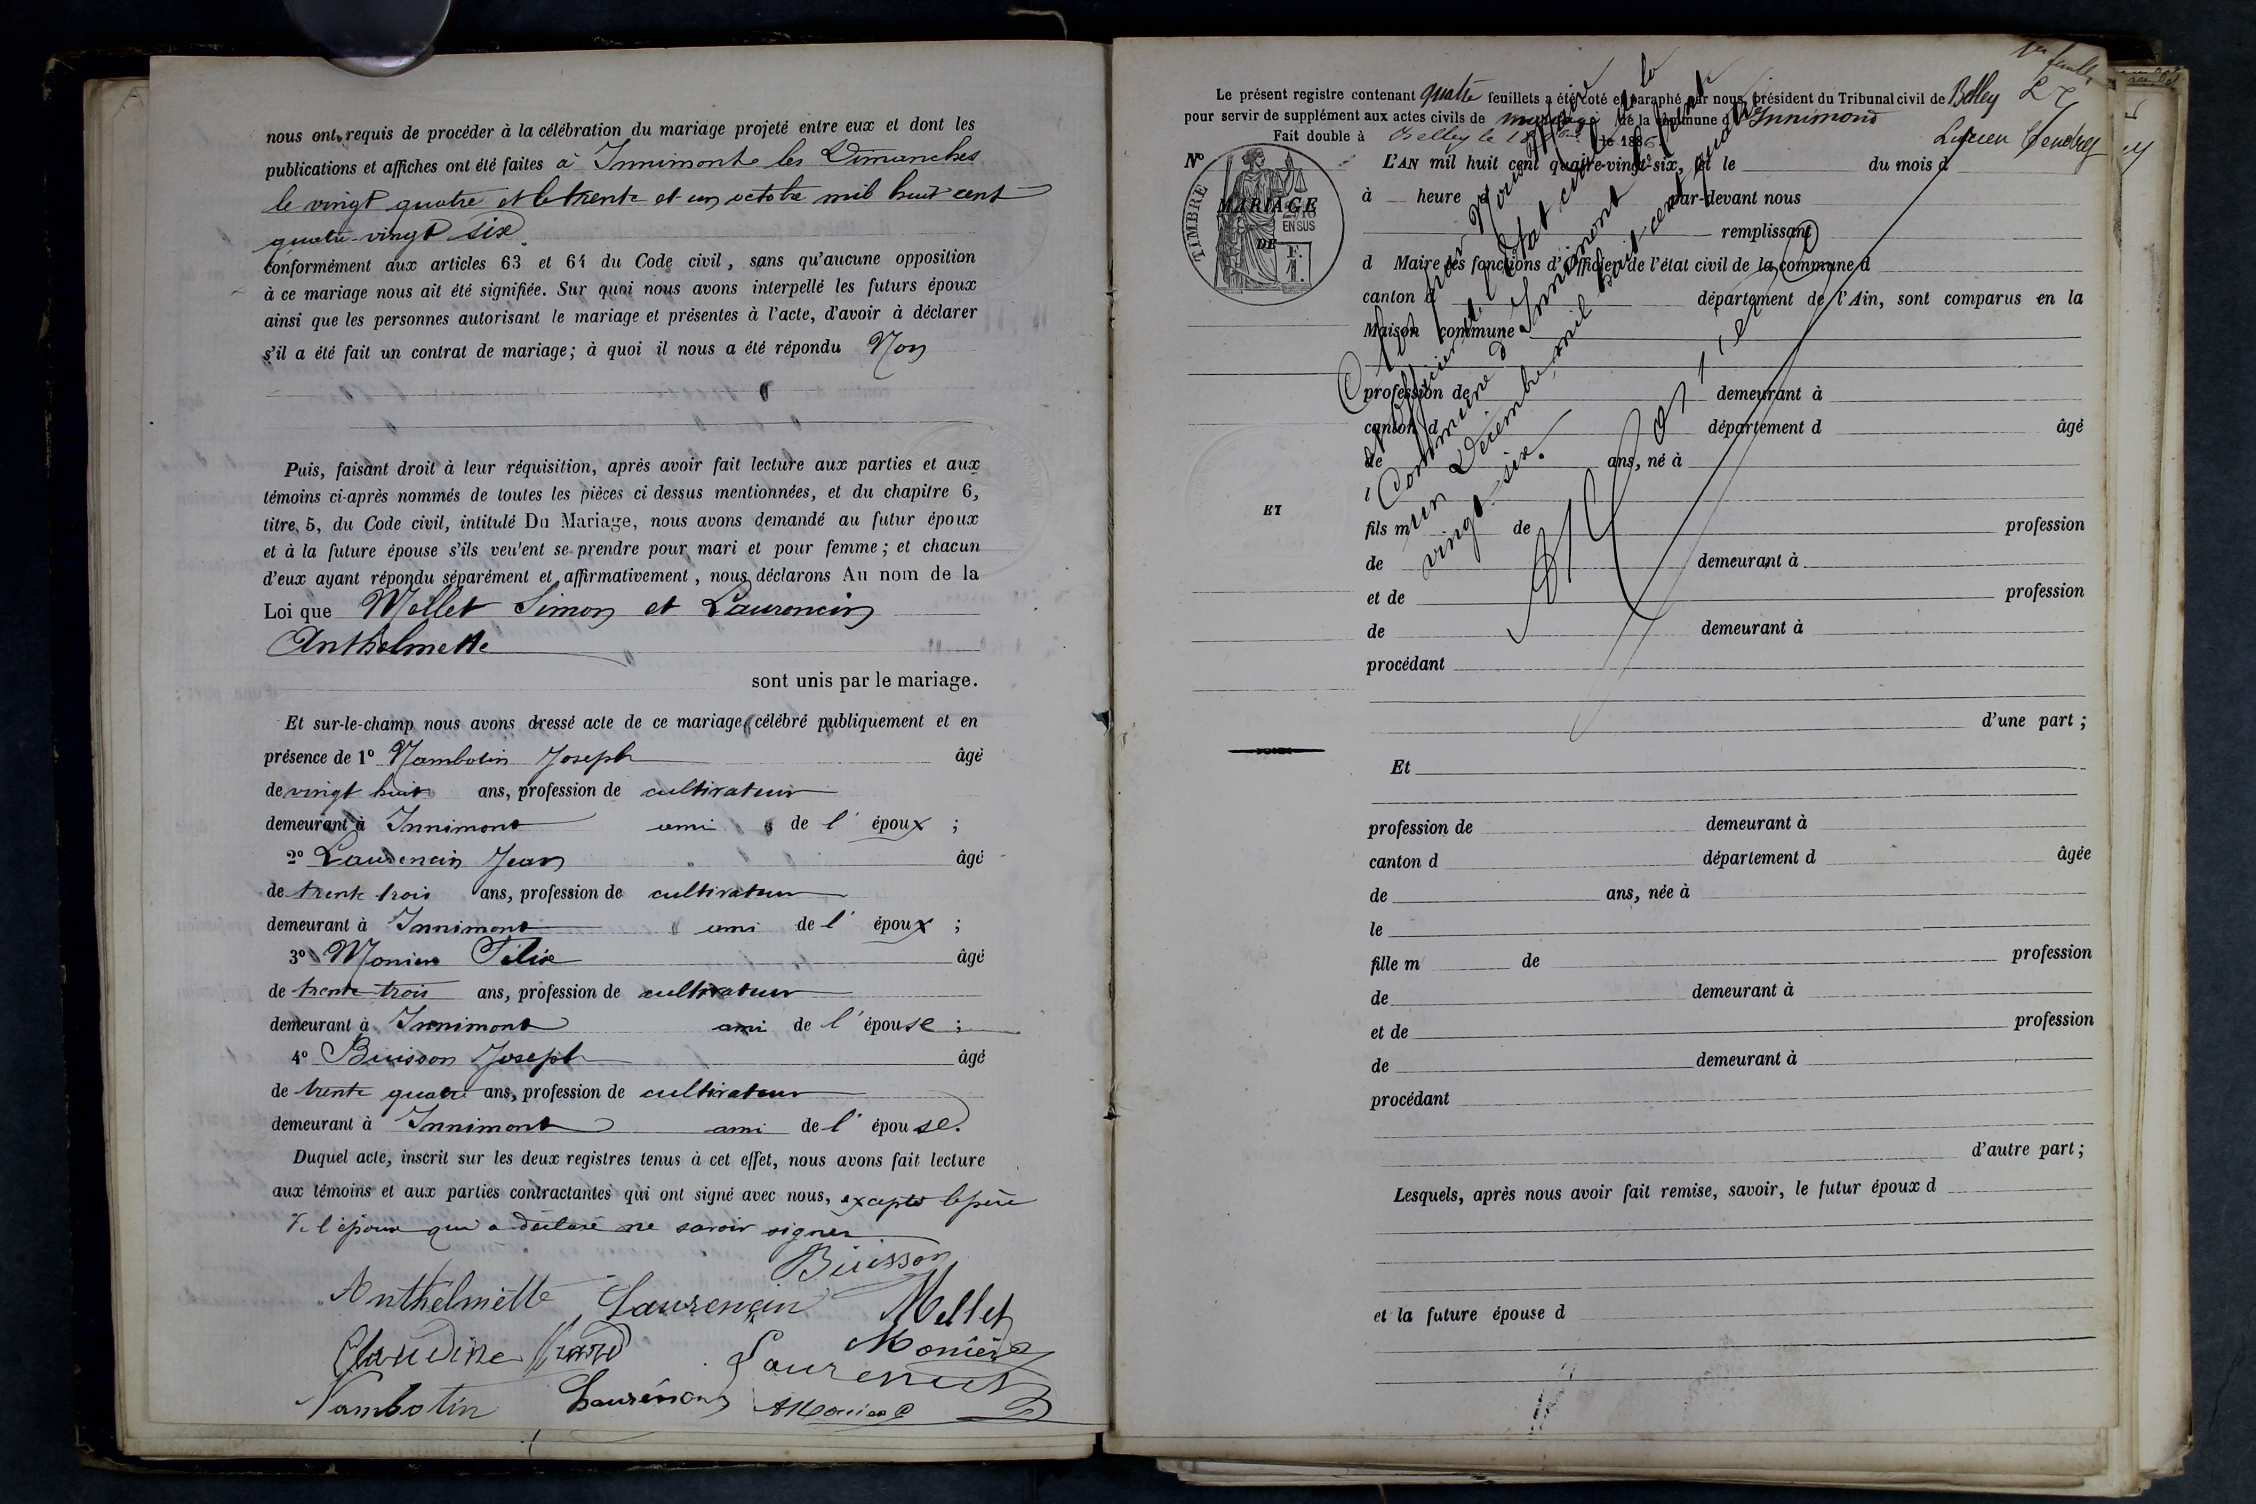 nous ont requis de procéder à la célébration du mariage projeté entre eux et dont les
publications et affiches ont été faites à Innimont les Dimanches
le vingt quatre et le trente et un octobre mil huit cent
quatre-vingt six
conformément aux articles 63 et 64 du Code civil, sans qu'aucune opposition
à ce mariage nous ait été signifiée. Sur quoi nous avons interpellé les futurs époux
ainsi que les personnes autorisant le mariage et présentes à l'acte, d'avoir à déclarer
s'il a été fait un contrat de mariage; à quoi il nous a été répondu Non
Puis, faisant droit à leur réquisition, après avoir fait lecture aux parties et aux
témoins ci-après nommés de toutes les pièces ci dessus mentionnées, et du chapitre 6,
titre, 5, du Code civil, intitulé Du Mariage, nous avons demandé au futur époux
et à la future épouse s'ils veu'ent se prendre pour mari et pour femme; et chacun
d'eux ayant répondu séparément et affirmativement, nous déclarons Au nom de la
Loi que Mellet Simon et Laurencin
Anthelmette
sont unis par le mariage.
Et sur-le-champ nous avons dressé acte de ce mariage, célébré publiquement et en
présence de 1° Nambotin Joseph âgé
de vingt huit ans, profession de cultivateur
demeurant à Innimont ami de l' époux ;
2° Laurencin Jean âgé
de trente trois ans, profession de cultivateur
demeurant à Innimont ami de l' époux ;
3° Monier Félix âgé
de trente trois ans, profession de cultivateur
demeurant à Innimont ami de l' épouse ;
4° Buisson Joseph âgé
de trente quatre ans, profession de cultivateur
demeurant à Innimont ami de l' épouse.
Duquel acte, inscrit sur les deux registres tenus à cet effet, nous avons fait lecture
aux témoins et aux parties contractantes qui ont signé avec nous, excepté le père
de l'époux qui a déclaré ne savoir signer
Buisson
Anthelmette Laurencin Mellet
Claudine Monier
Nambotin Laurencin
1er feuille
Le présent registre contenant quatre feuillets a été coté et paraphé par nous, président du Tribunal civil de Belley
pour servir de supplément aux actes civils de mariage de la commune d'Innimond
Fait double à Belley le 1886
N° L'AN mil huit cent quatre-vingt-six, et le du mois d
TIMBRE
MARIAGE
2/10
EN SUS
DE
à heure par-devant nous
remplissant
d Maire les fonctions d'Officier de l'état civil de la commune d
canton d département de l'Ain, sont comparus en la
Maison commune
profession de demeurant à
canton d département d âgé
de ans, né à
l
ET
fils m de profession
de demeurant à
et de profession
de demeurant à
procédant
d'une part ;
Clos par Nous Maire
et Officier de l'état civil de la
Commune d'Innimont le trente
un Décembre mil huit cent quatre
vingt-six.
Et
profession de demeurant à
canton d département d âgée
de ans, née à
le
fille m de profession
de demeurant à
et de profession
de demeurant à
procédant
d'autre part ;
Lesquels, après nous avoir fait remise, savoir, le futur époux d
et la future épouse d